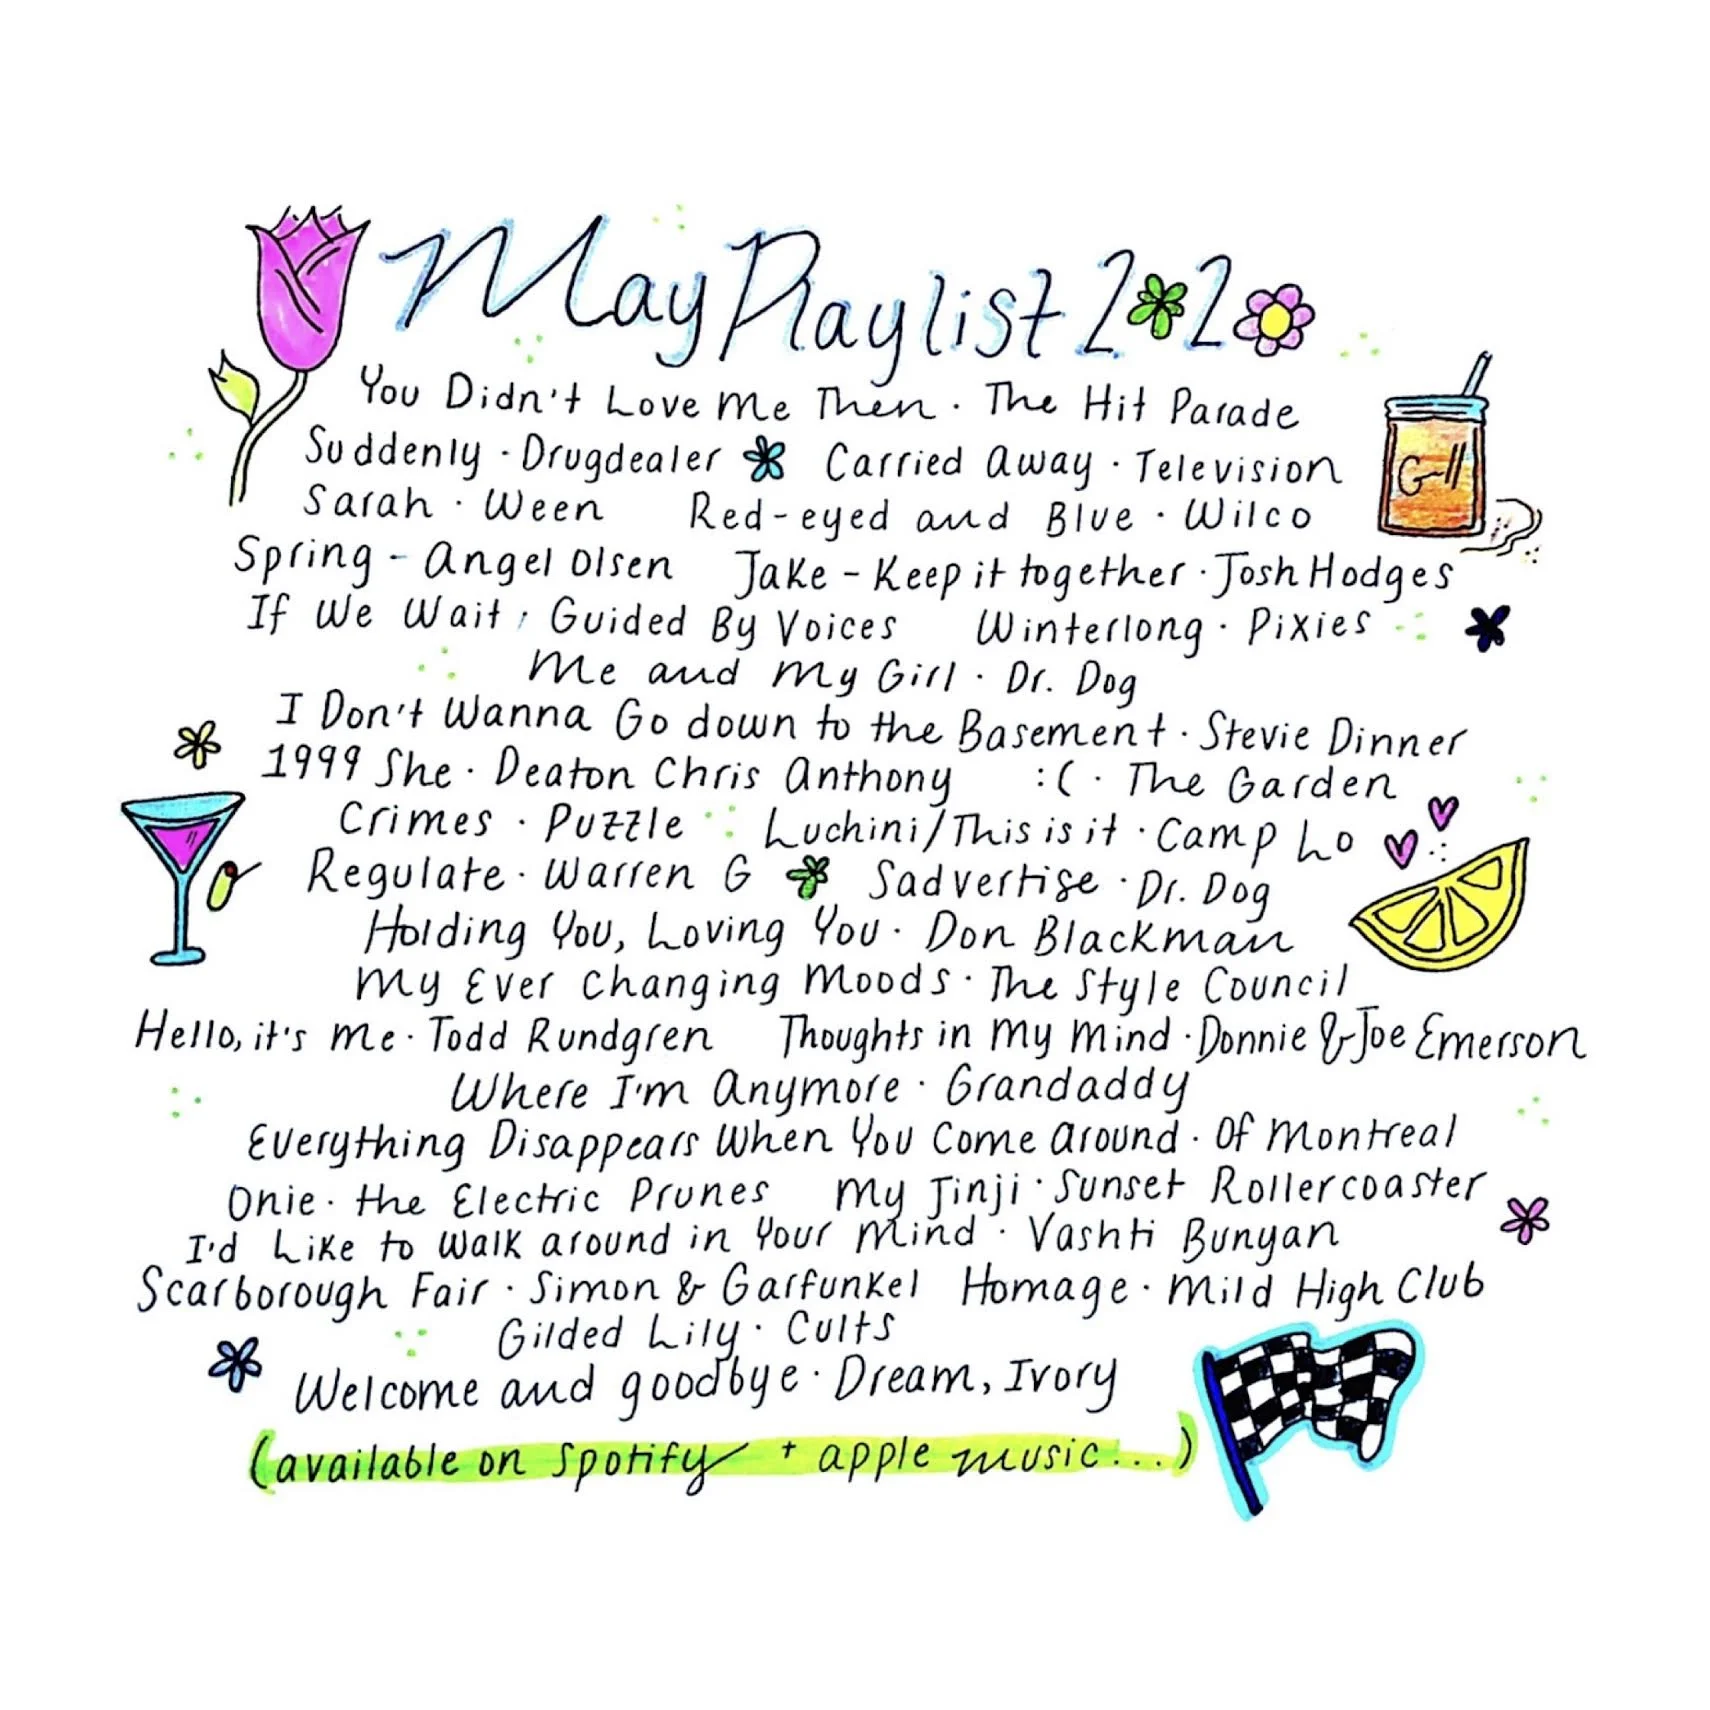 May Playlist 2020
You Didn't Love Me Then · The Hit Parade
Suddenly · Drugdealer Carried Away · Television
Sarah · Ween Red-eyed and Blue · Wilco
Spring - Angel Olsen Jake - Keep it together · Josh Hodges
If We Wait · Guided By Voices Winterlong · Pixies
Me and My Girl · Dr. Dog
I Don't Wanna Go down to the Basement · Stevie Dinner
1999 She · Deaton Chris Anthony :( · The Garden
Crimes · Puzzle Luchini/This is it · Camp Lo
Regulate · Warren G Sadvertise · Dr. Dog
Holding You, Loving You · Don Blackman
My Ever Changing Moods · The Style Council
Hello, it's Me · Todd Rundgren Thoughts in My Mind · Donnie & Joe Emerson
Where I'm Anymore · Grandaddy
Everything Disappears When You Come Around · Of Montreal
Onie · the Electric Prunes My Jinji · Sunset Rollercoaster
I'd Like to Walk around in Your Mind · Vashti Bunyan
Scarborough Fair · Simon & Garfunkel Homage · Mild High Club
Gilded Lily · Cults
Welcome and goodbye · Dream, Ivory
(available on spotify + apple music...)